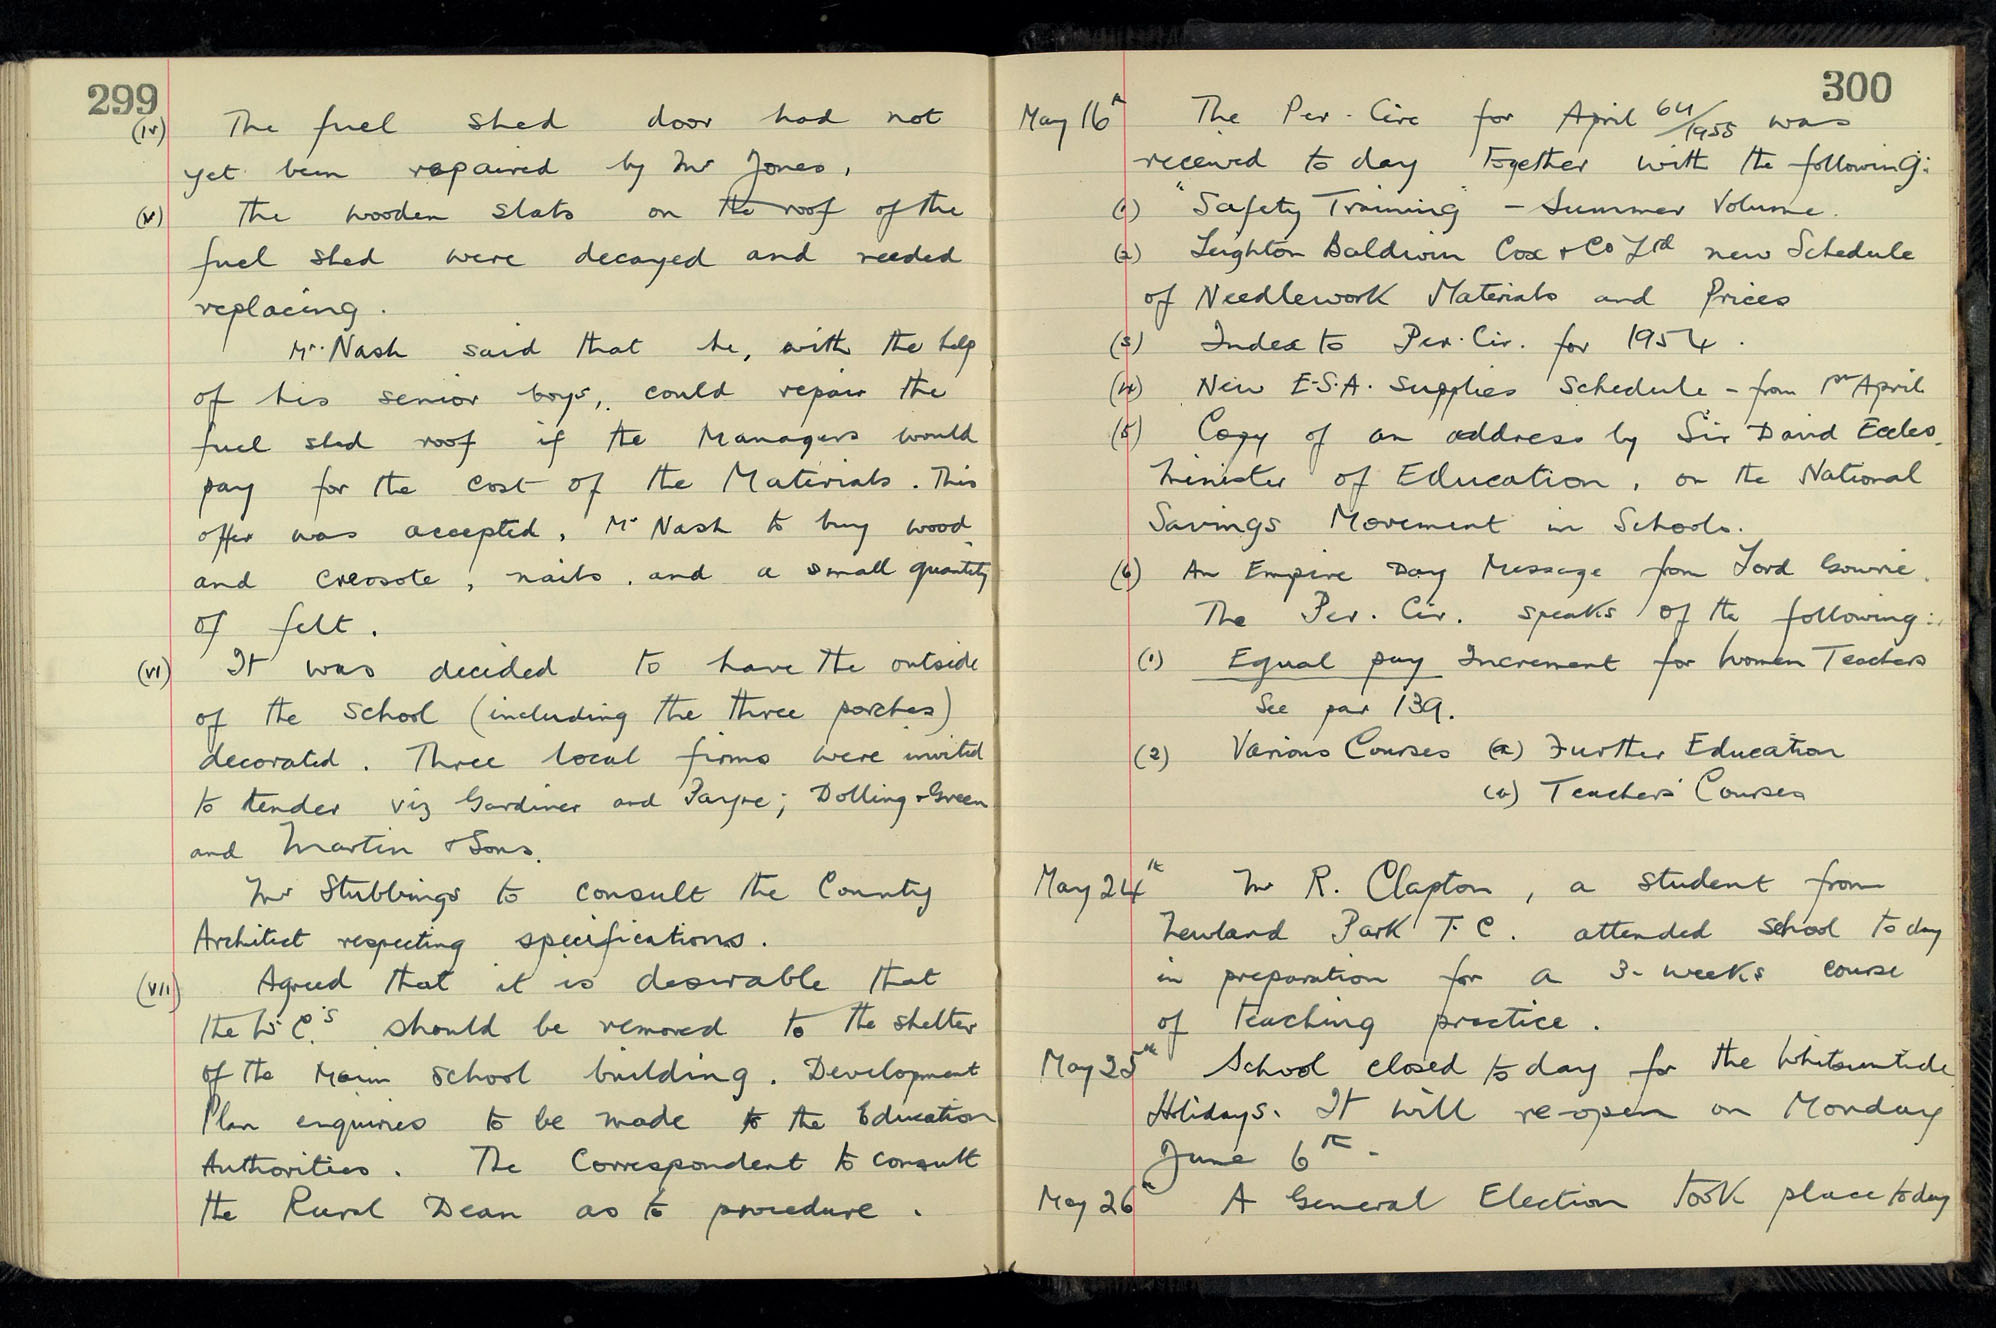 299
(iv) The fuel shed door had not
yet been repaired by Mr Jones.
(v) The wooden slats on the roof of the
fuel shed were decayed and needed
replacing.
Mr. Nash said that he, with the help
of his senior boys, could repair the
fuel shed roof if the Managers would
pay for the cost of the Materials. This
offer was accepted, Mr Nash to buy wood
and creosote, nails, and a small quantity
of felt.
(vi) It was decided to have the outside
of the School (including the three porches)
decorated. Three local firms were invited
to tender viz Gardiner and Payne; Dolling & Green
and Martin & Sons.
Mr Stubbings to consult the County
Architect respecting specifications.
(vii) Agreed that it is desirable that
the W.C.'s should be removed to the shelter
of the Main School building. Development
Plan enquiries to be made to the Education
Authorities. The Correspondent to consult
the Rural Dean as to procedure.
300
May 16th The Per. Circ for April 64/1955 was
received to day together with the following:
(1) "Safety Training" - Summer Volume.
(2) Leighton Baldwin Cox & Co Ltd new Schedule
of Needlework Materials and Prices
(3) Index to Per. Cir. for 1954.
(4) New E.S.A. Supplies Schedule - from 1st April
(5) Copy of an address by Sir David Eccles,
Minister of Education, on the National
Savings Movement in Schools.
(6) An Empire Day Message from Lord Gowrie.
The Per. Cir. speaks of the following:
(1) Equal pay Increment for Women Teachers
See par 139.
(2) Various Courses (a) Further Education
(b) Teachers' Courses
May 24th Mr R. Clapton, a student from
Newland Park T.C. attended school to day
in preparation for a 3-weeks course
of teaching practice.
May 25th School closed to day for the Whitsuntide
Holidays. It will re-open on Monday
June 6th.
May 26th A General Election took place to day